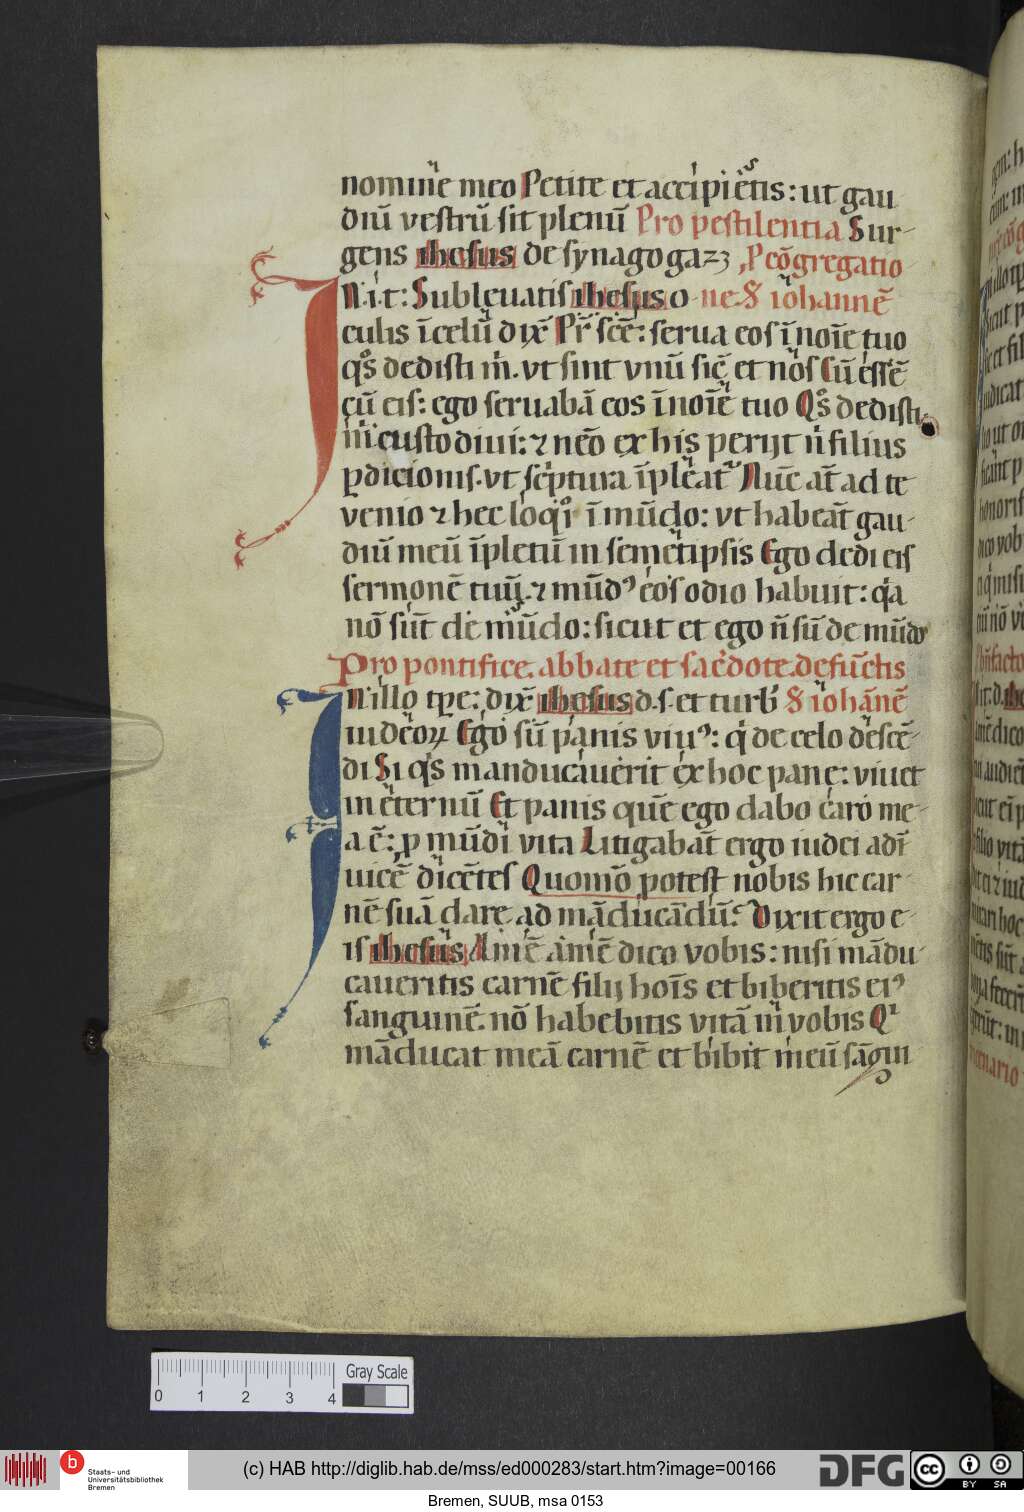 nomine meo Petite et accipiet̄is: ut gau
diū vestrū sit plenū Pro pestilentia Sur-
gens ihesus de synagoga zͻ P cōgregatio
N i.t: Subleuatis ihesus o ne. S̄ iohannē
culis ī celū dix̄ Pr̄ sc̄e: serua eos ī noīe tuo
qͦs dedisti m̄. vt sint vnū sic̄ et nos Cū ess̄ē
cū eis: ego seruabā eos ī noīe tuo Qͦs dedisti
m̄ custodiui: ⁊ nēo ex his perijt n̄ filius
ꝑdicionis. vt sc̄ptura īpleat᷑ Nūc at̄ ad te
venio ⁊ hec loqͦr ī mūdo: vt habeāt gau-
diū meū īpletū in semet̄ipsis Ego dedi eis
sermonē tuū. ⁊ mūdꝰ eos odio habuit: qͥa
nō sūt de mūdo: sicut et ego n̄ sū de mūdo
Pro pontifice. abbate et sac̄dote. defūctis
N illo tꝑe: dix̄ ihesus d. s. et turb̄ S̄ iohānē
iudeoꝝ Ego sū panis viuꝰ: qͥ de celo descē-
di Si qͥs manducauerit ex hoc pane: viuet
in eternū Et panis quē ego dabo caro me-
a ē: ꝓ mūdi vita Litigabāt ergo iudei adī
uicē dicētes Quomō potest nobis hic car-
nē suā dare ad māducādū Dixit ergo e-
is ihesus Amē amē dico vobis: nisi mādu
caueritis carnē filij hoīs et biberitis eiꝰ
sanguinē. nō habebitis vitā in vobis Qͥ
māducat meā carnē et bibit meū sāgui
0 1 2 3 4
Gray Scale
b
Staats- und
Universitätsbibliothek
Bremen
(c) HAB http://diglib.hab.de/mss/ed000283/start.htm?image=00166
DFG
cc BY SA
Bremen, SUUB, msa 0153